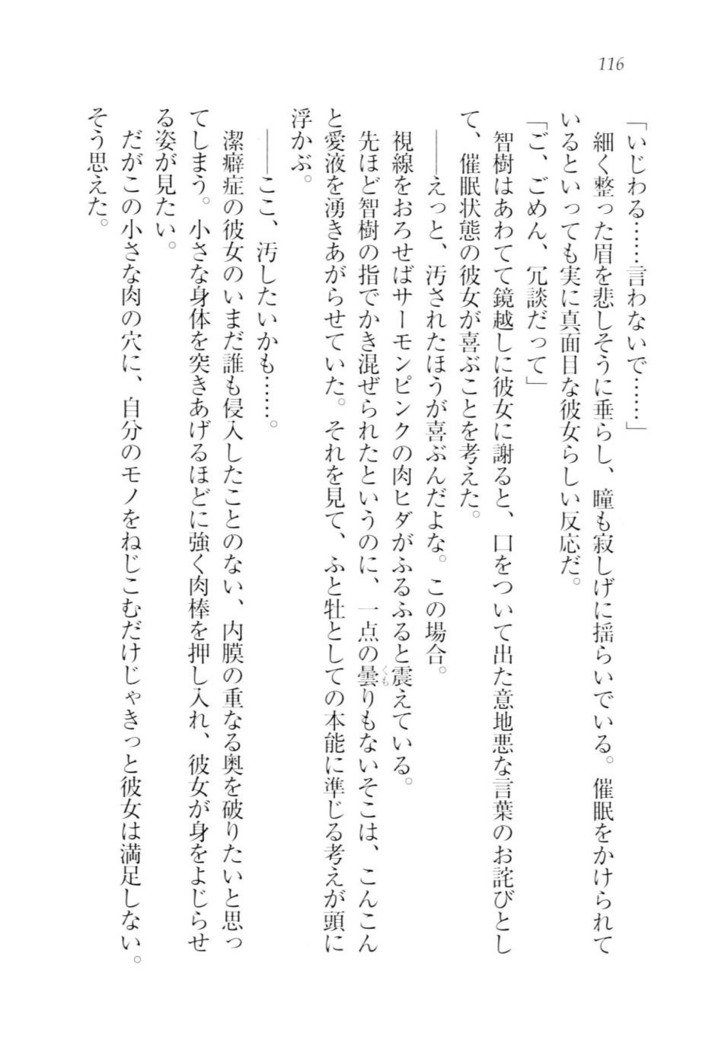 116
「いじわる……言わないで……」
細く整った眉を悲しそうに垂らし、瞳も寂しげに揺らいでいる。催眠をかけられて
いるといっても実に真面目な彼女らしい反応だ。
「ご、ごめん、冗談だって」
智樹はあわてて鏡越しに彼女に謝ると、口をついて出た意地悪な言葉のお詫びとし
て、催眠状態の彼女が喜ぶことを考えた。
――えっと、汚されたほうが喜ぶんだよな。この場合。
視線をおろせばサーモンピンクの肉ヒダがふるふると震えている。
先ほど智樹の指でかき混ぜられたというのに、一点の曇りもないそこは、こんこん
と愛液を湧きあがらせていた。それを見て、ふと牡としての本能に準じる考えが頭に
浮かぶ。
――ここ、汚したいかも……。
潔癖症の彼女のいまだ誰も侵入したことのない、内膜の重なる奥を破りたいと思っ
てしまう。小さな身体を突きあげるほどに強く肉棒を押し入れ、彼女が身をよじらせ
る姿が見たい。
だがこの小さな肉の穴に、自分のモノをねじこむだけじゃきっと彼女は満足しない。
そう思えた。